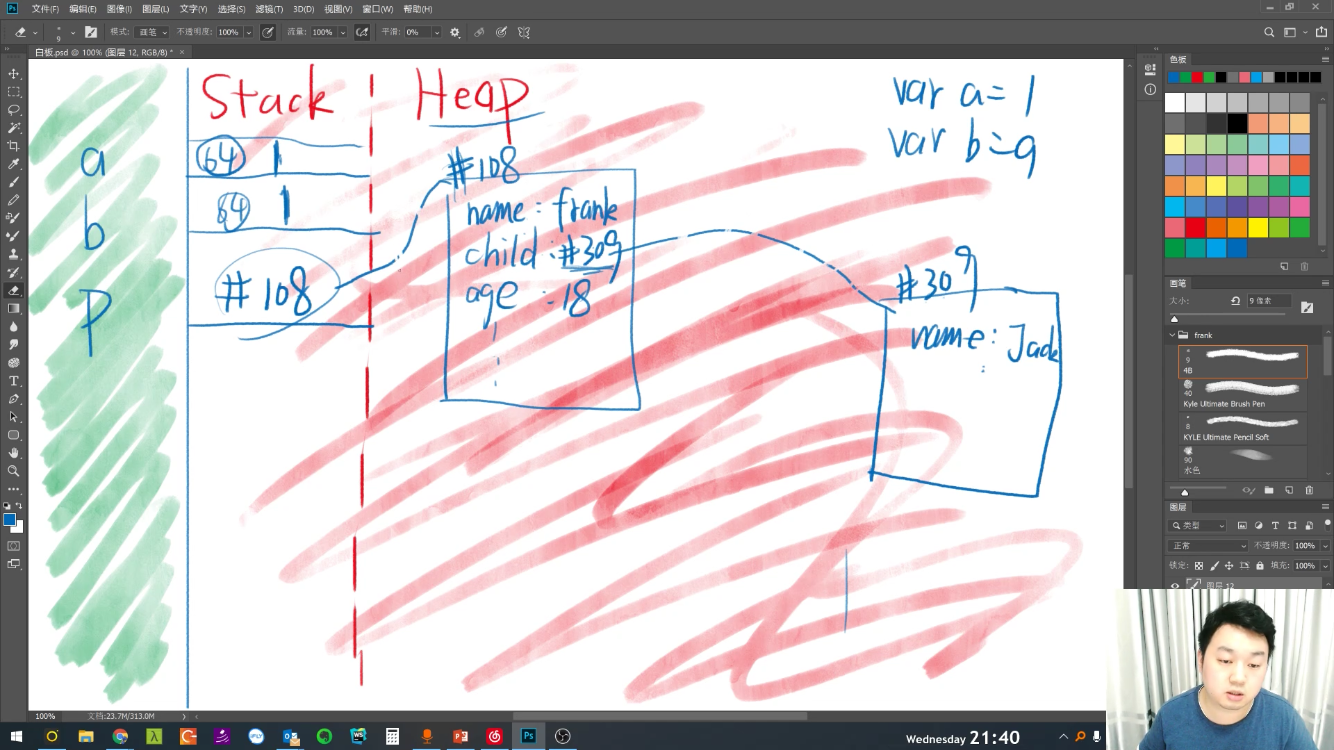 文件(F) 编辑(E) 图像(I) 图层(L) 文字(Y) 选择(S) 滤镜(T) 3D(D) 视图(V) 窗口(W) 帮助(H)
9 模式: 画笔 不透明度: 100% 流量: 100% 平滑: 0%
白板.psd @ 100% (图层 12, RGB/8) *
Stack
Heap
var a = 1
var b = a
a
64 1
b
64 1
p
#108
#108
name: frank
child: #309
age: 18
#309
name: Jack
色板
画笔
大小: 9 像素
frank
9
4B
40
Kyle Ultimate Brush Pen
8
KYLE Ultimate Pencil Soft
90
水色
图层
类型
正常 不透明度: 100%
锁定: 填充: 100%
图层 12
100% 文档:23.7M/313.0M
Wednesday 21:40